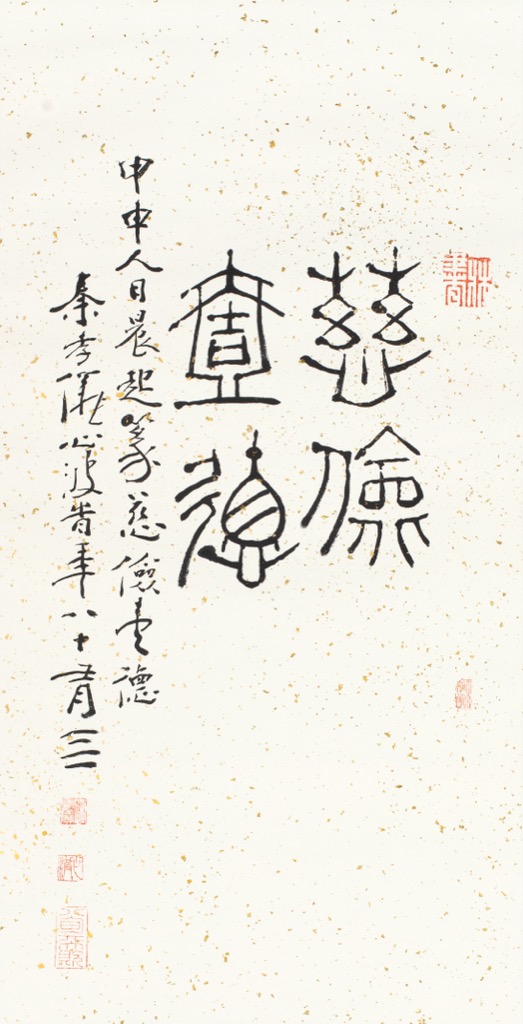 慈儉
壹德
甲申人日晨起篆慈儉壹德
秦孝儀心波旹年八十有三